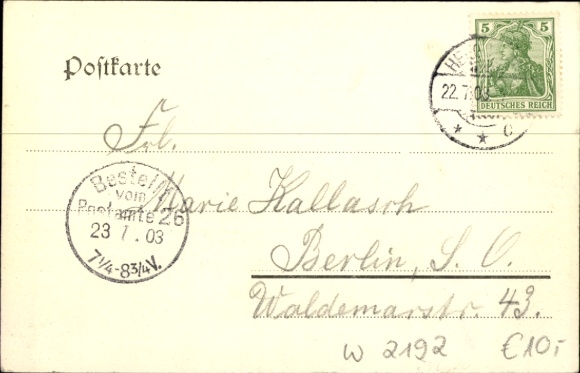 5 5
DEUTSCHES REICH
Postkarte
22.7.03
* * c
Frl.
Marie Kallasch
Berlin, S. O.
Waldemarstr. 43.
Bestellt
vom
Postamte 26
23 7. 03
7 1/4-8 3/4 V.
W 2192 €10,-